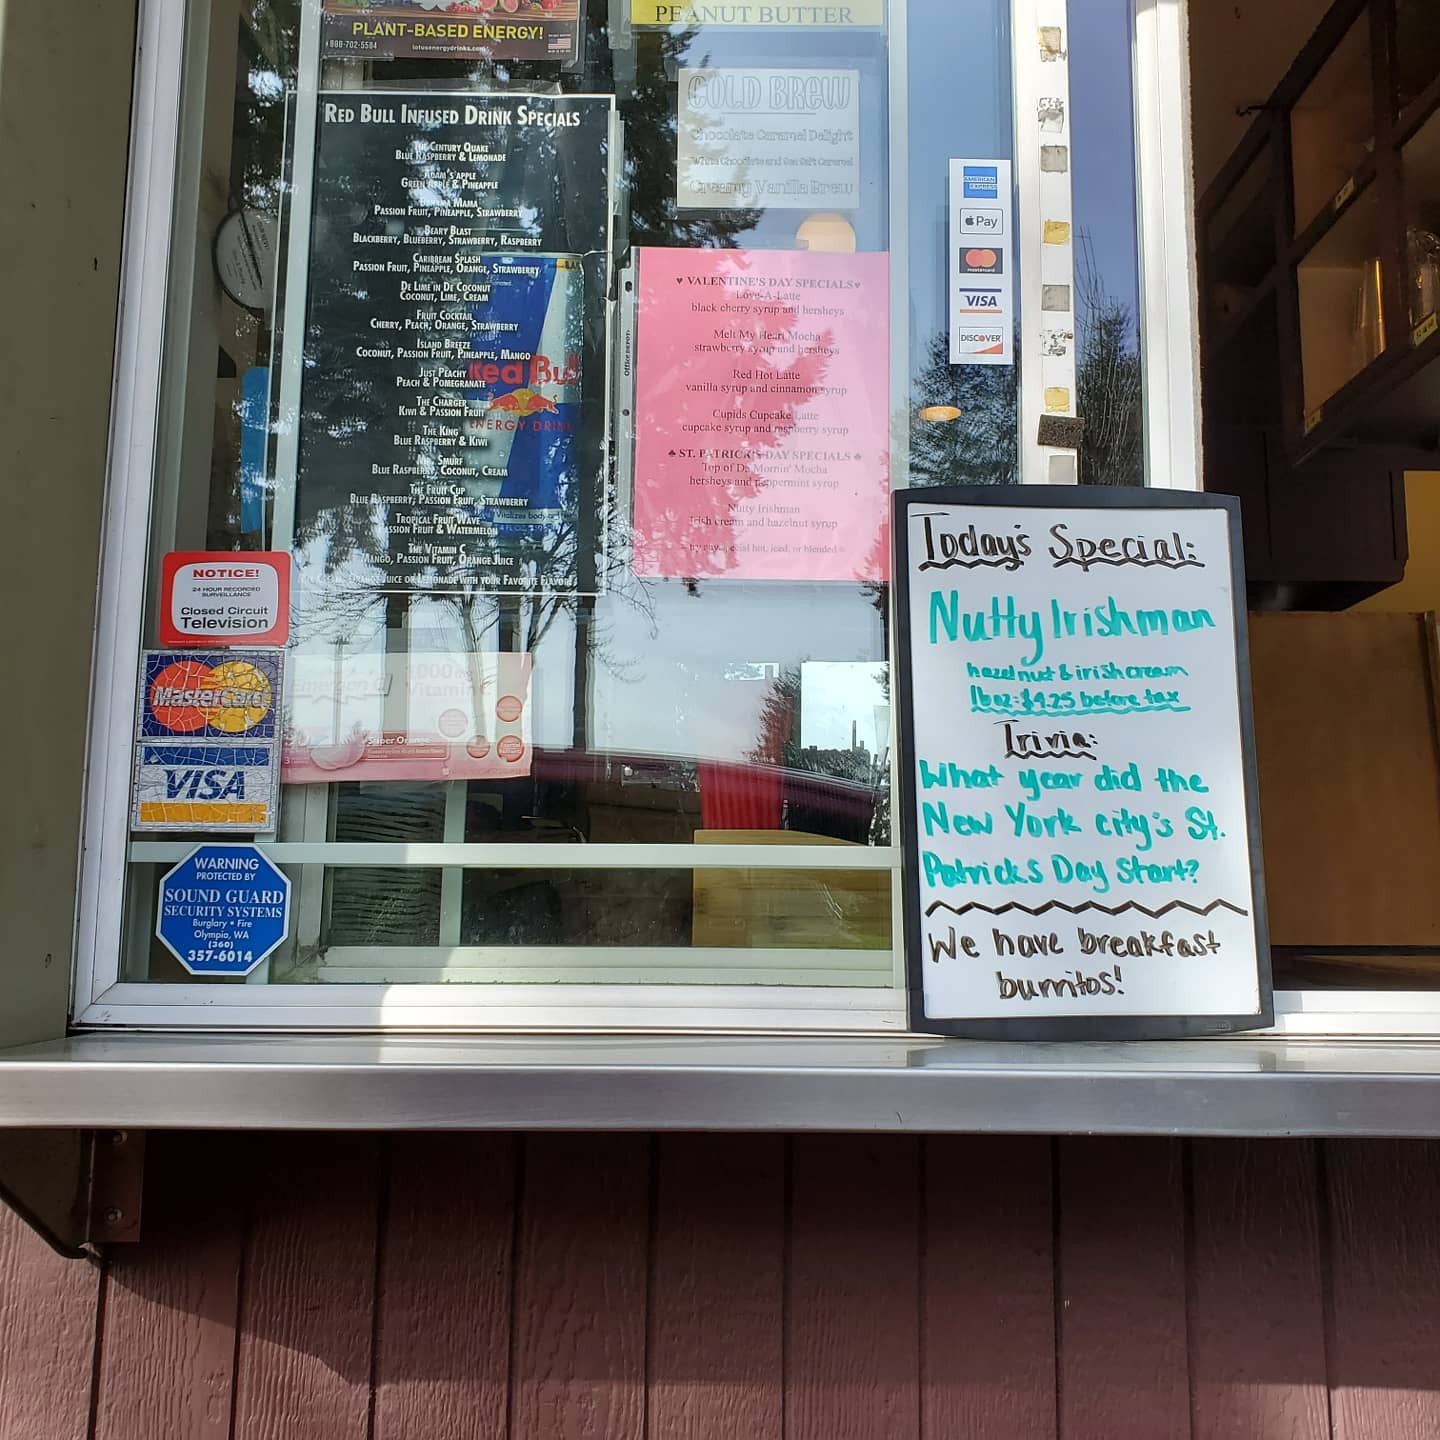 PLANT-BASED ENERGY!
lotusenergydrinks.com
PEANUT BUTTER
RED BULL INFUSED DRINK SPECIALS
THE CENTURY QUAKE
BLUE RASPBERRY & LEMONADE
ADAM'S APPLE
GREEN APPLE & PINEAPPLE
BAHAMA MAMA
PASSION FRUIT, PINEAPPLE, STRAWBERRY
BEARY BLAST
BLACKBERRY, BLUEBERRY, STRAWBERRY, RASPBERRY
CARIBBEAN SPLASH
PASSION FRUIT, PINEAPPLE, ORANGE, STRAWBERRY
DE LIME IN DE COCONUT
COCONUT, LIME, CREAM
FRUIT COCKTAIL
CHERRY, PEACH, ORANGE, STRAWBERRY
ISLAND BREEZE
COCONUT, PASSION FRUIT, PINEAPPLE, MANGO
JUST PEACHY
PEACH & POMEGRANATE
THE CHARGER
KIWI & PASSION FRUIT
THE KING
BLUE RASPBERRY & KIWI
MR. SMURF
BLUE RASPBERRY, COCONUT, CREAM
THE FRUIT CUP
BLUE RASPBERRY, PASSION FRUIT, STRAWBERRY
TROPICAL FRUIT WAVE
PASSION FRUIT & WATERMELON
THE VITAMIN C
MANGO, PASSION FRUIT, ORANGE JUICE
ORANGE JUICE OR LEMONADE WITH YOUR FAVORITE FLAVOR
Red Bull
ENERGY DRINK
COLD BREW
Chocolate Caramel Delight
White Chocolate and Sea Salt Caramel
Creamy Vanilla Brew
Office DEPOT
♥ VALENTINE'S DAY SPECIALS ♥
Love-A-Latte
black cherry syrup and hersheys
Melt My Heart Mocha
strawberry syrup and hersheys
Red Hot Latte
vanilla syrup and cinnamon syrup
Cupids Cupcake Latte
cupcake syrup and raspberry syrup
♣ ST. PATRICK'S DAY SPECIALS ♣
Top of Da Mornin' Mocha
hersheys and peppermint syrup
Nutty Irishman
Irish cream and hazelnut syrup
try any special hot, iced, or blended
AMERICAN EXPRESS
Pay
mastercard
VISA
DISCOVER
NOTICE!
24 HOUR RECORDED
SURVEILLANCE
Closed Circuit
Television
MasterCard
VISA
WARNING
PROTECTED BY
SOUND GUARD
SECURITY SYSTEMS
Burglary • Fire
Olympia, WA
(360)
357-6014
1000mg
Vitamin C
Super Orange
Today's Special:
Nutty Irishman
hazelnut & irish cream
16oz: $4.25 before tax
Trivia:
What year did the
New York city's St.
Patricks Day Start?
We have breakfast
burritos!